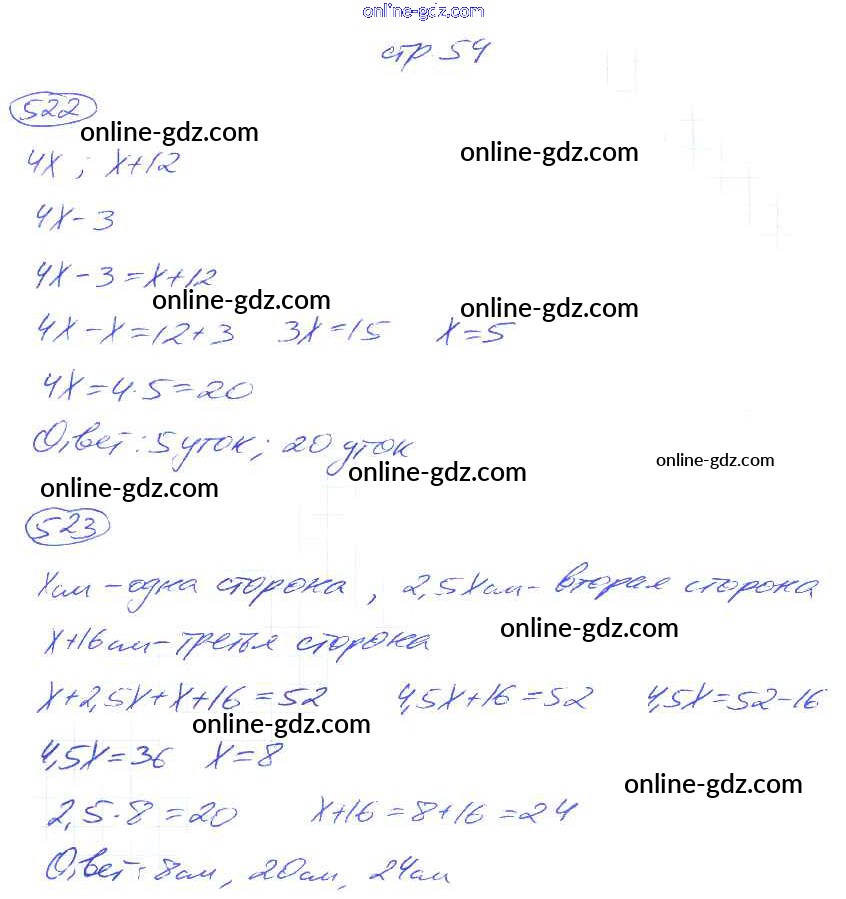 online-gdz.com
стр. 54
522
online-gdz.com
online-gdz.com
4x ; x+12
4x - 3
4x - 3 = x+12
online-gdz.com
online-gdz.com
4x - x = 12 + 3 3x = 15 x = 5
4x = 4 · 5 = 20
Ответ: 5 уток; 20 уток
online-gdz.com
online-gdz.com
online-gdz.com
523
x см - одна сторона, 2,5x см - вторая сторона
online-gdz.com
x+16 см - третья сторона
x+2,5x+x+16 = 52 4,5x+16 = 52 4,5x = 52-16
online-gdz.com
4,5x = 36 x = 8
online-gdz.com
2,5 · 8 = 20 x+16 = 8+16 = 24
Ответ: 8 см, 20 см, 24 см